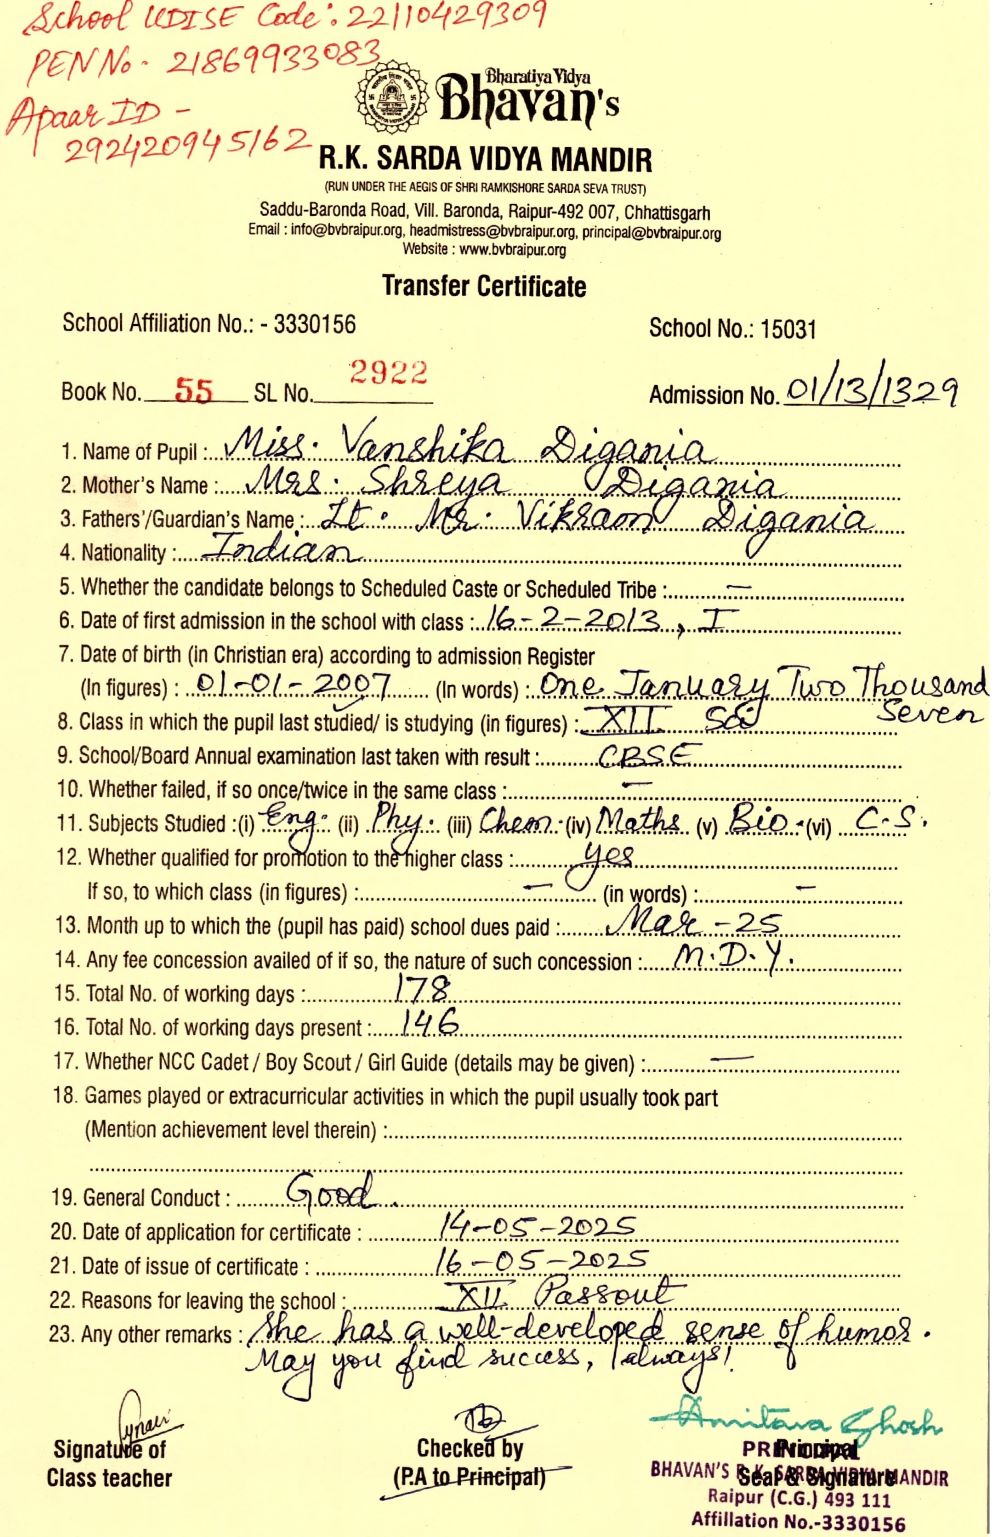 School UDISE Code: 22110429309
PEN No. 21869933083
Apaar ID -
292420945162
Bharatiya Vidya
Bhavan's
R.K. SARDA VIDYA MANDIR
(RUN UNDER THE AEGIS OF SHRI RAMKISHORE SARDA SEVA TRUST)
Saddu-Baronda Road, Vill. Baronda, Raipur-492 007, Chhattisgarh
Email : info@bvbraipur.org, headmistress@bvbraipur.org, principal@bvbraipur.org
Website : www.bvbraipur.org
Transfer Certificate
School Affiliation No.: - 3330156 School No.: 15031
Book No. 55 SL No. 2922 Admission No. 01/13/1329
1. Name of Pupil : Miss. Vanshika Digania
2. Mother's Name : Mrs. Shreya Digania
3. Fathers'/Guardian's Name : Lt. Mr. Vikram Digania
4. Nationality : Indian
5. Whether the candidate belongs to Scheduled Caste or Scheduled Tribe : —
6. Date of first admission in the school with class : 16-2-2013, I
7. Date of birth (in Christian era) according to admission Register
(In figures) : 01-01-2007 (In words) : One January Two Thousand
Seven
8. Class in which the pupil last studied/ is studying (in figures) : XII Sci
9. School/Board Annual examination last taken with result : CBSE
10. Whether failed, if so once/twice in the same class : —
11. Subjects Studied :(i) Eng. (ii) Phy. (iii) Chem. (iv) Maths (v) Bio. (vi) C.S.
12. Whether qualified for promotion to the higher class : yes
If so, to which class (in figures) : — (in words) : —
13. Month up to which the (pupil has paid) school dues paid : Mar-25
14. Any fee concession availed of if so, the nature of such concession : M.D.Y.
15. Total No. of working days : 178
16. Total No. of working days present : 146
17. Whether NCC Cadet / Boy Scout / Girl Guide (details may be given) : —
18. Games played or extracurricular activities in which the pupil usually took part
(Mention achievement level therein) :
19. General Conduct : Good.
20. Date of application for certificate : 14-05-2025
21. Date of issue of certificate : 16-05-2025
22. Reasons for leaving the school : XII Passout
23. Any other remarks : She has a well-developed sense of humor.
May you find success, always!
Amitava Ghosh
Signature of Checked by Principal
Class teacher (P.A to Principal) Seal & Signature
PRINCIPAL
BHAVAN'S R.K. SARDA VIDYA MANDIR
Raipur (C.G.) 493 111
Affillation No.-3330156